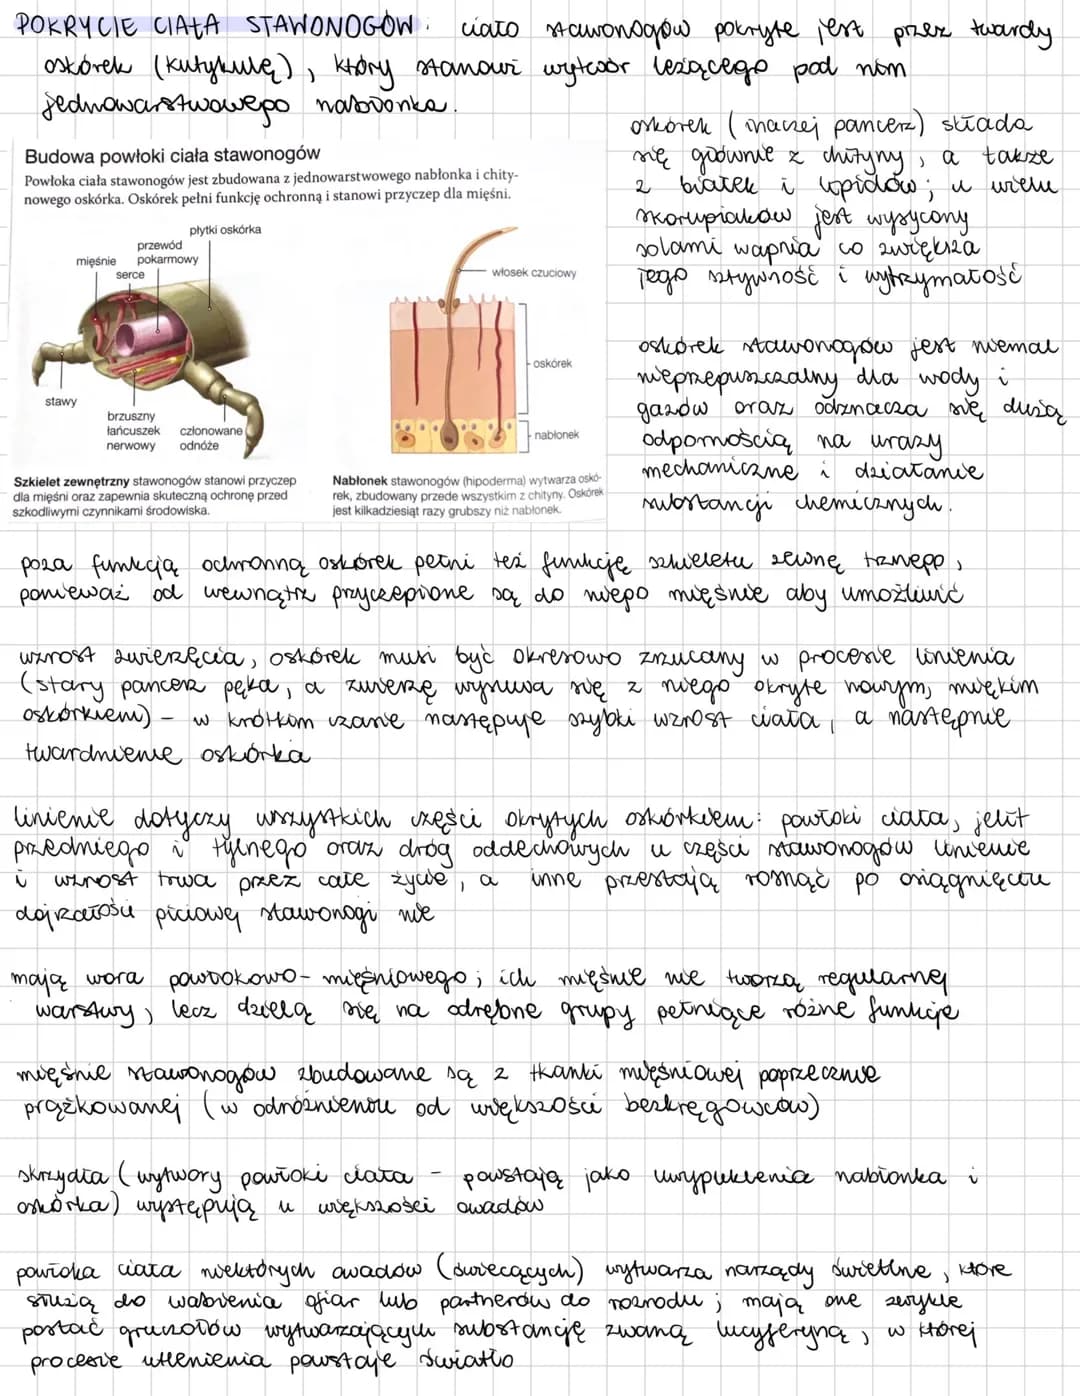 POKRYCIE CIAŁA STAWONOGÓW: ciało stawonogów pokryte jest przez twardy
oskórek (kutykulę), który stanowi wytwór leżącego pod nim
jednowarstwowego nabłonka.
Budowa powłoki ciała stawonogów
Powłoka ciała stawonogów jest zbudowana z jednowarstwowego nabłonka i chity-
nowego oskórka. Oskórek pełni funkcję ochronną i stanowi przyczep dla mięśni.
płytki oskórka
przewód
pokarmowy
mięśnie
serce
stawy
brzuszny
łańcuszek
nerwowy
członowane
odnóże
włosek czuciowy
oskórek
nabłonek
Szkielet zewnętrzny stawonogów stanowi przyczep
dla mięśni oraz zapewnia skuteczną ochronę przed
szkodliwymi czynnikami środowiska.
Nabłonek stawonogów (hipoderma) wytwarza oskó-
rek, zbudowany przede wszystkim z chityny. Oskórek
jest kilkadziesiąt razy grubszy niż nabłonek.
oskórek (inaczej pancerz) składa
się głównie z chityny, a także
z białek i lipidów; u wielu
skorupiaków jest wysycony
solami wapnia co zwiększa
jego sztywność i wytrzymałość
oskórek stawonogów jest niemal
nieprzepuszczalny dla wody i
gazów oraz odznacza się dużą
odpornością na urazy
mechaniczne i działanie
substancji chemicznych.
poza funkcją ochronną oskórek pełni też funkcję szkieletu zewnętrznego,
ponieważ od wewnątrz przyczepione są do niego mięśnie aby umożliwić
wzrost zwierzęcia, oskórek musi być okresowo zrzucany w procesie linienia
(stary pancerz pęka, a zwierzę wysuwa się z niego okryte nowym, miękim
oskórkiem) – w krótkim czasie następuje szybki wzrost ciała, a następnie
twardnienie oskórka
linienie dotyczy wszystkich części okrytych oskórkiem: powłoki ciała, jelit
przedniego i tylnego oraz dróg oddechowych u części stawonogów linienie
i wzrost trwa przez całe życie, a inne przestają rosnąć po osiągnięciu
dojrzałości płciowej stawonogi nie
mają wora powłokowo-mięśniowego; ich mięśnie nie tworzą regularnej
warstwy, lecz dzielą się na odrębne grupy pełniące różne funkcje
mięśnie stawonogów zbudowane są z tkanki mięśniowej poprzecznie
prążkowanej (w odróżnieniu od większości bezkręgowców)
skrzydła (wytwory powłoki ciała – powstają jako uwypuklenia nabłonka i
oskórka) występują u większości owadów
powłoka ciała niektórych owadów (świecących) wytwarza narządy świetlne, które
służą do wabienia ofiar lub partnerów do rozrodu; mają one zwykle
postać gruczołów wytwarzających substancję zwaną lucyferyną, w której
procesie utlenienia powstaje światło